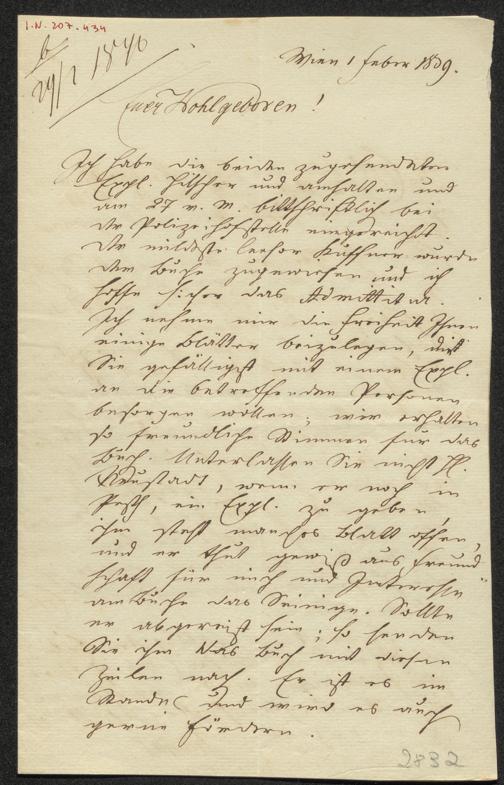 I.N. 207.434
Wien 1 Feber 1839.
Euer Wohlgeboren!
Ich habe die beiden zugesendeten
Expl. Hilscher und erhalten und
am 27 v. M. bittschriftlich bei
der Polizeihofstelle eingereicht.
Der mildeste Censor Kuffner wurde
dem Buche zugewiesen und ich
hoffe sicher das Admittitur.
Ich nehme mir die Freiheit Ihnen
einige Blätter beizulegen, die
Sie gefälligst mit einem Expl.
an die betreffenden Personen
besorgen wollen; wir erhalten
so freundliche Stimmen für das
Buch. Unterlassen Sie nicht H.
Neustadt, wenn er noch in
Pesth, ein Expl. zu geben,
ihm steht manches Blatt offen,
und er thut gewiß aus Freund-
schaft für mich und Interesse
am Buche das Seinige. Sollte
er abgereist sein, so senden
Sie ihm das Buch mit diesen
Zeilen nach. Er ist es im
Stande und wird es auch
gerne fördern.
2832